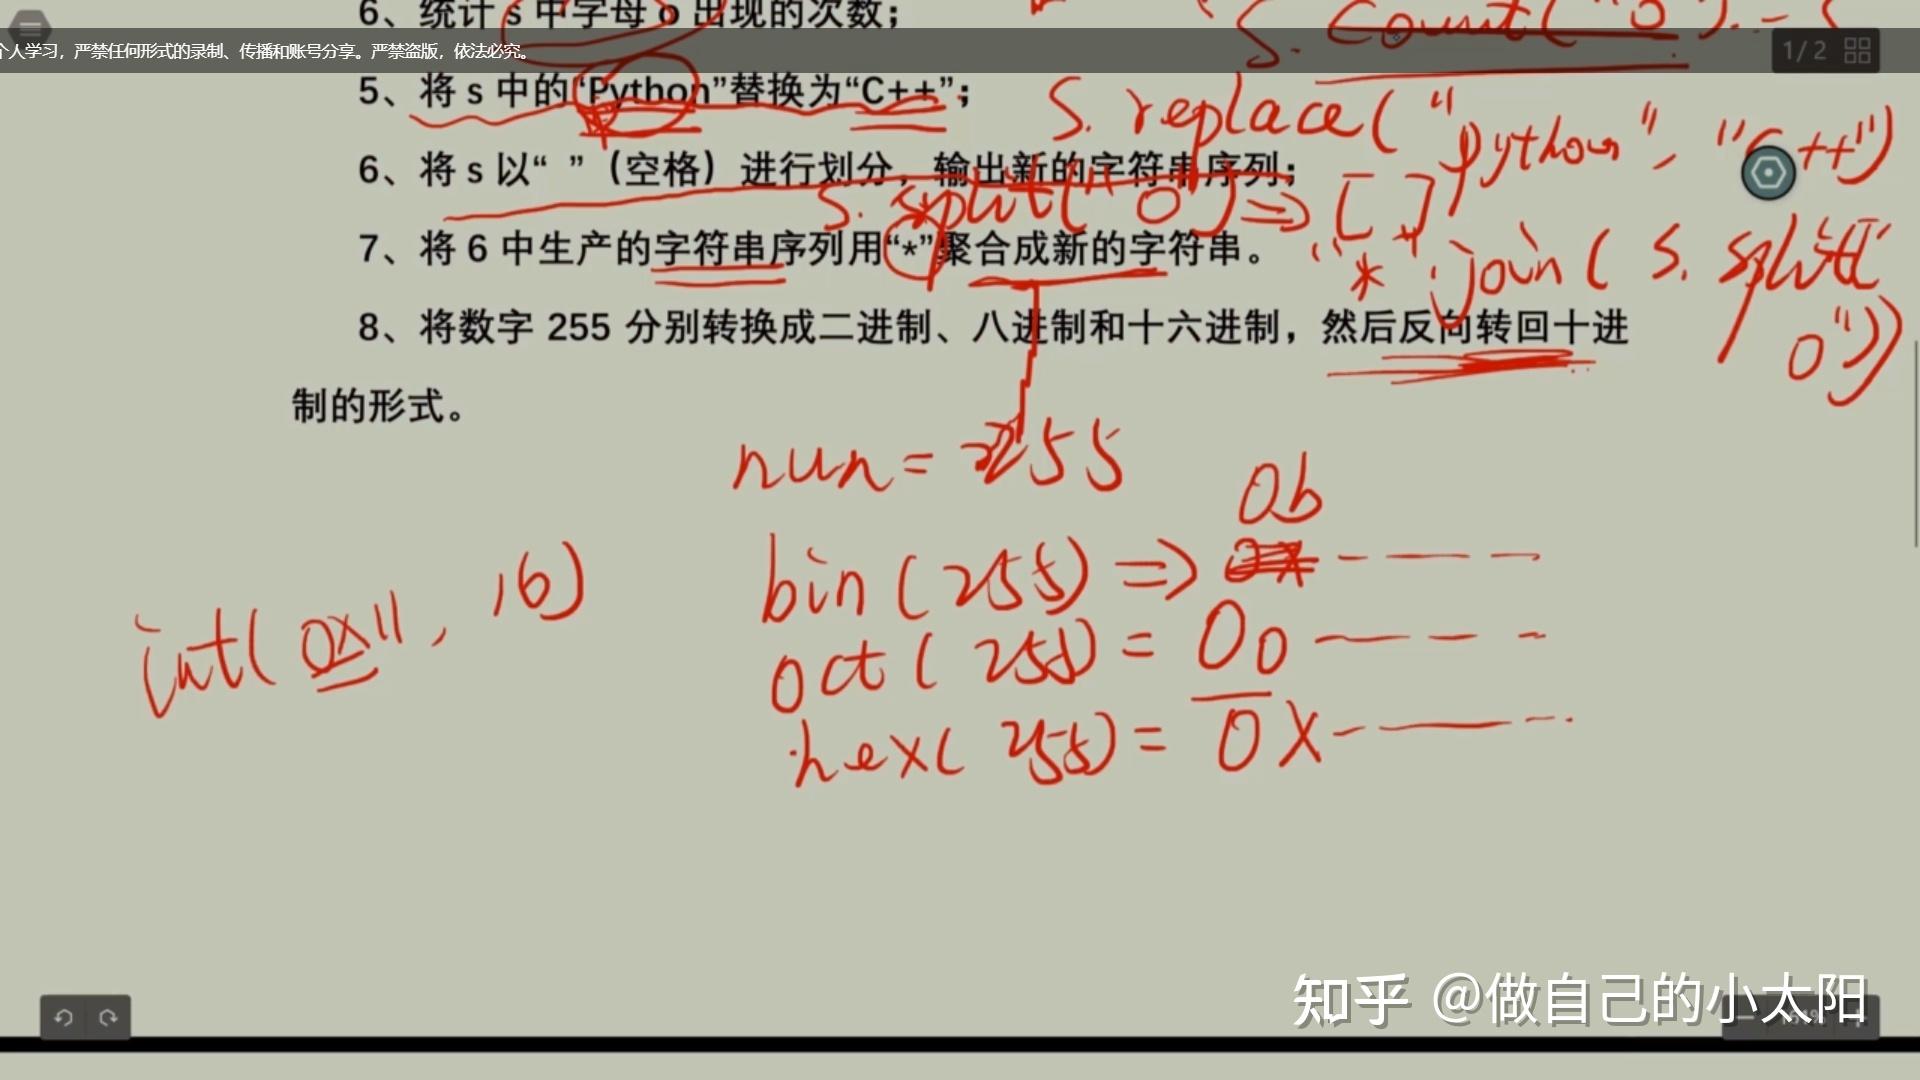 6、统计 s 中字母 o 出现的次数；
s.count("o")
个人学习，严禁任何形式的录制、传播和账号分享。严禁盗版，依法必究。
1/2
5、将 s 中的“Python”替换为“C++”；
s.replace("python", "C++")
6、将 s 以“ ”（空格）进行划分，输出新的字符串序列；
s.split("0") => [ ]
7、将 6 中生产的字符串序列用“*”聚合成新的字符串。
"*".join(s.split("
0"))
8、将数字 255 分别转换成二进制、八进制和十六进制，然后反向转回十进
制的形式。
num = 255
0b
bin(255) =>
int(0x11, 16)
oct(255) = 0o
hex(255) = 0x
知乎 @做自己的小太阳